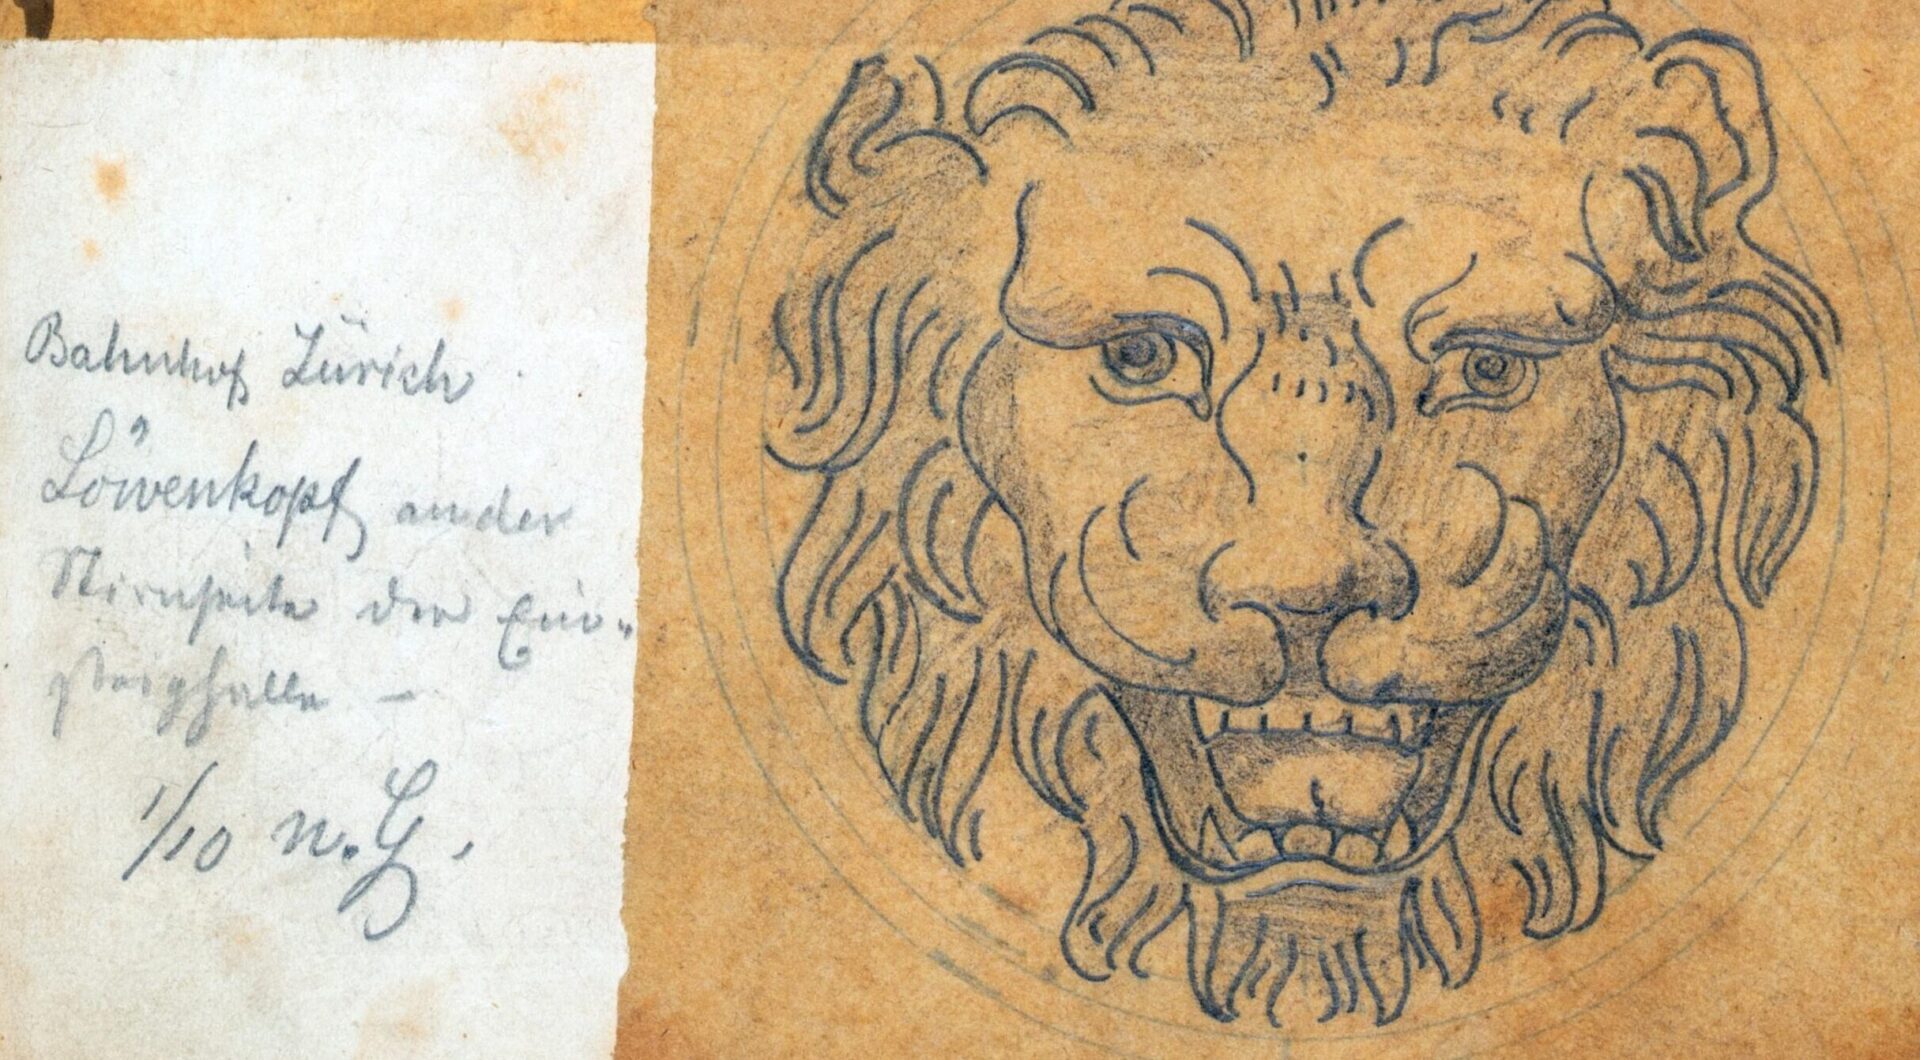 Bahnhof Zürich
Löwenkopf an der
Stirnseite der Ein-
steighalle –
1/10 n. G.